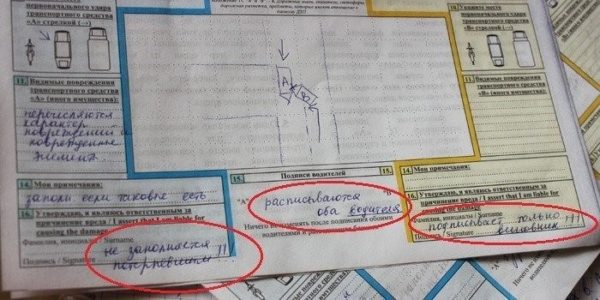 первоначального удара
транспортного средства
«А» стрелкой (→)
10. Укажите место
первоначального удара
транспортного средства
А
В
11. Видимые повреждения
транспортного средства
«А» (иного имущества):
перечисляются
характер
повреждений и
повреждённые
11.
Видимые повреждения
транспортного средства
«В» (иного имущества):
14. Мои примечания:
запоним если таковые есть
15. Подписи водителей 15.
"А" расписываются
оба водителя
Ничего не изменять после подписания обоими
водителями и
14. Мои примечания:
16. Утверждаю, и являюсь ответственным за
причинение вреда / I assert that I am liable for
causing the damage
Фамилия, инициалы / Surname
Подпись / Signature
не заполняется
потерпевшим !!
16. Утверждаю, и являюсь ответственным за
причинение вреда / I assert that I am liable for
causing the damage
Фамилия, инициалы / Surname
подписывает только !!!
Подпись / Signature
виновник